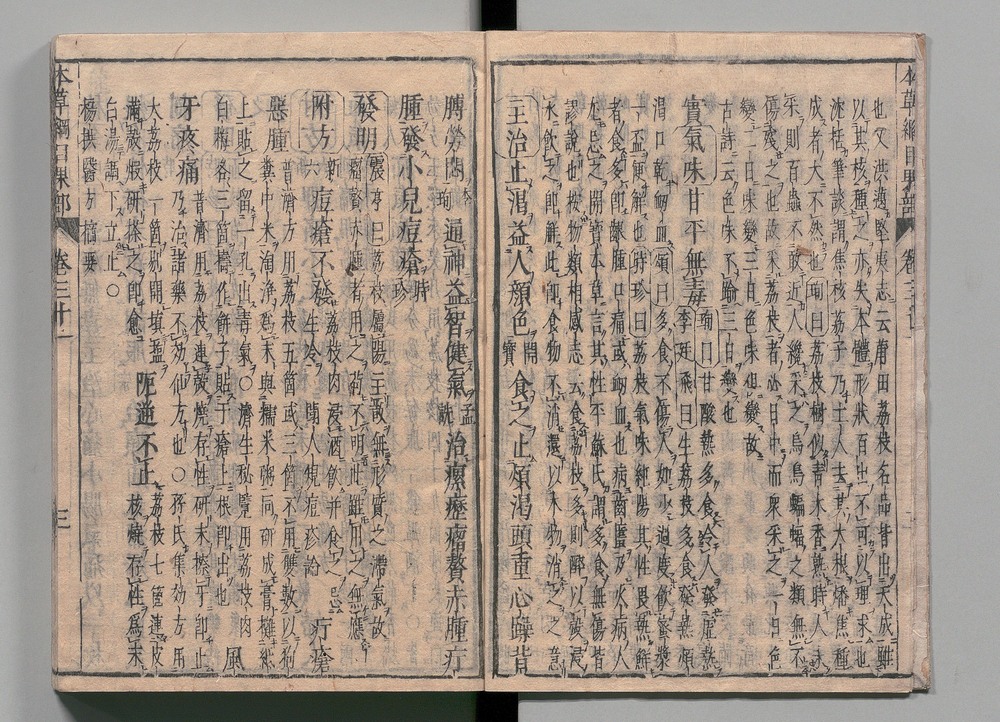 本草綱目果部 卷三十一
也又洪邁堅夷志云莆田荔枝名品皆出天成雖
以其核種之亦失本體形狀百出不可以理求也
沈括筆談謂焦核荔子乃土人去其大根燔焦種
成者大不然也珣曰荔枝樹似青木香熟時人未
采則百蟲不敢近人纔采之烏鳥蝙蝠之類無不
傷殘之也故采荔枝者必日中而衆采之一日色
變二日味變三日色味俱變故
古詩云色味不踰三日變也
實氣味甘平無毒
珣曰甘酸熱多食令人發虛熱
李廷飛曰生荔枝多食發熱煩
渴口乾衄血頴曰多食不傷人如少過度飲蜜漿
一盃便解也時珍曰荔枝氣味純陽其性畏熱鮮
者食多即齦腫口痛或衄血也病齒䘌及火病人
尤忌之開寶本草言其性平蘇氏謂多食無傷皆
謬說也按物類相感志云食荔枝多則醉以殼浸
水飲之即解此即食物不消還以本物消之之意
主治止渴益人顔色開寶食之止煩渴頭重心躁背
膊勞悶李珣通神益智健氣孟詵治瘰癧瘤贅赤腫疔
腫發小兒痘瘡時珍
發明
震亨曰荔枝屬陽主散無形質之滯氣故
瘤贅赤腫者用之苟不明此雖用之無應
附方新六痘瘡不發
荔枝肉浸酒飲并食之忌
生冷 聞人規痘疹論
疔瘡
惡腫
普濟方用荔枝五箇或三箇不用雙數以狗
糞中米淘淨爲末與糯米粥同研成膏攤紙
上貼之留一孔出毒氣○濟生秘覽用荔枝肉
白梅各三箇搗作餅子貼于瘡上根即出也
風
牙疼痛
普濟用荔枝連殼燒存性研末擦牙即止
乃治諸藥不効仙方也○孫氏集効方用
大荔枝一箇剔開填鹽
滿殼煅研搽之即愈
呃逆不止
荔枝七箇連皮
核燒存性爲末
白湯調下立止○
楊拱醫方摘要
本草綱目果部 卷三十一 三